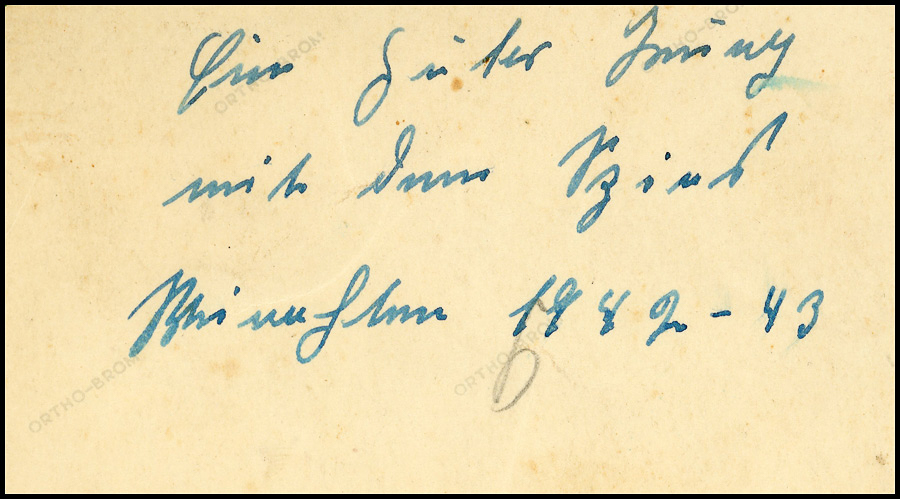 Ein guter
mit dem Spies
Weinachten 1942-43
ORTHO-BROM
ORTHO-BROM
ORTHO-BROM